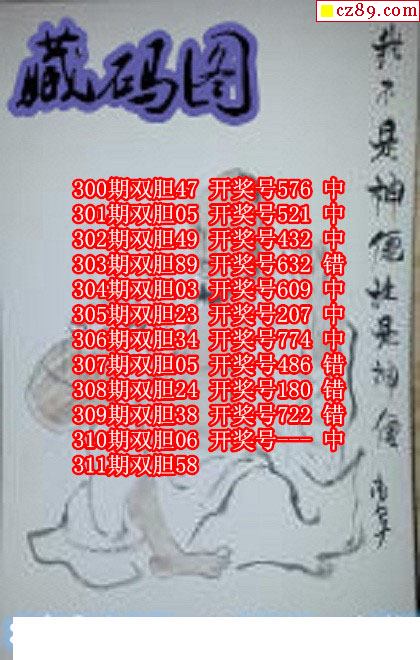 cz89.com
藏码图
我不是神仙
300期双胆47 开奖号576 中
301期双胆05 开奖号521 中
302期双胆49 开奖号432 中
303期双胆89 开奖号632 错
304期双胆03 开奖号609 中
305期双胆23 开奖号207 中
306期双胆34 开奖号774 中
307期双胆05 开奖号486 错
308期双胆24 开奖号180 错
309期双胆38 开奖号722 错
310期双胆06 开奖号--- 中
311期双胆58